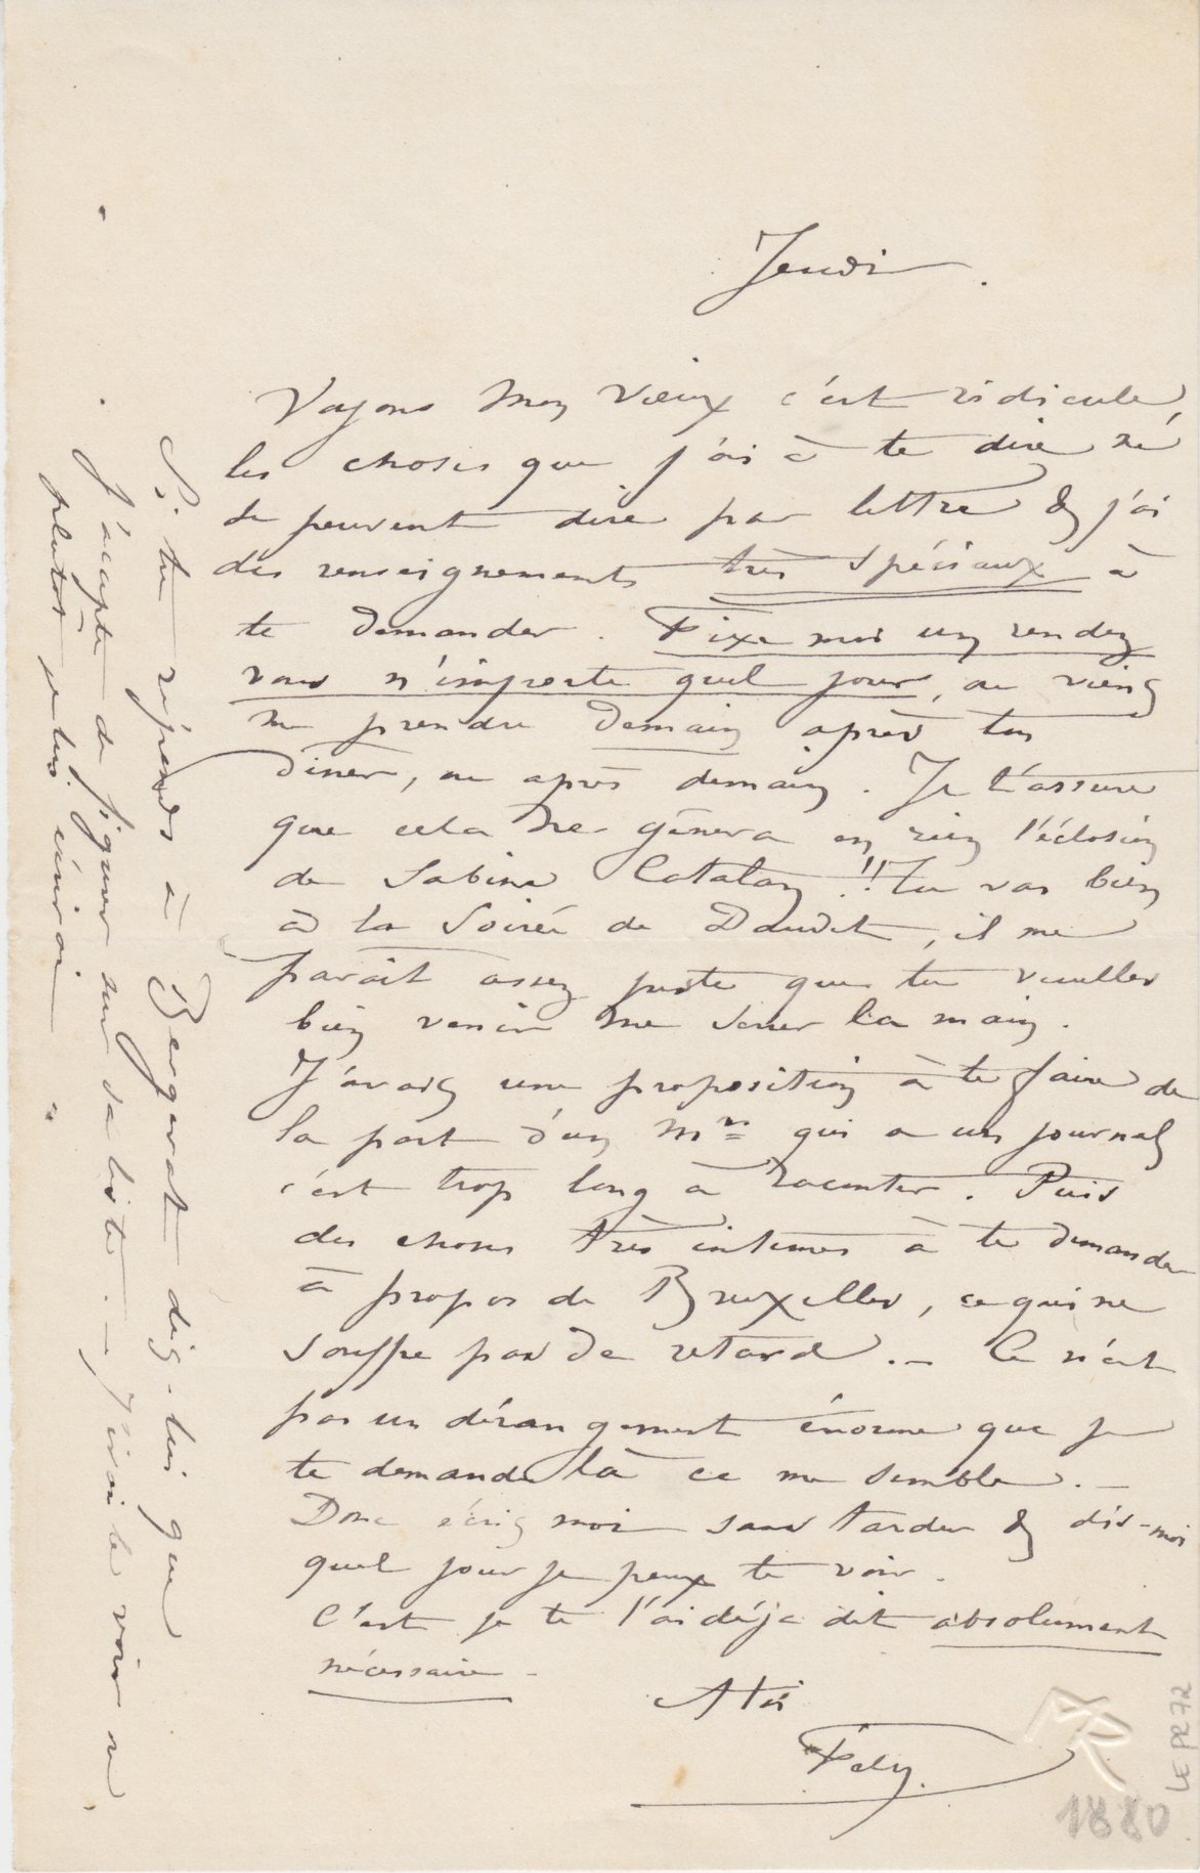 Jeudi.
Voyons mon vieux c'est ridicule,
les choses que j'ai à te dire ne
se peuvent dire par lettre & j'ai
des renseignements très spéciaux à
te demander. Fixe moi un rendez
vous n'importe quel jour, ou viens
me prendre demain après ton
diner, ou après demain. Je t'assure
que cela ne gênera en rien l'éclosion
de Sabine Catalan!! Tu vas bien
à la soirée de Daudet, il me
parait assez juste que tu veuilles
bien venir me serrer la main.
J'avais une proposition à te faire de
la part d'un Mr qui a un journal
c'est trop long à raconter. Puis
des choses très intimes à te demander
à propos de Bruxelles, ce qui ne
souffre pas de retard. — Ce n'est
pas un dérangement énorme que je
te demande là ce me semble. —
Donc écris moi sans tarder & dis-moi
quel jour je peux te voir.
C'est je te l'ai déjà dit absolument
nécessaire –
A toi
Fély.
Si tu réponds à Bergerat dis-lui que
j'accepte de figurer sur sa liste. — J'irai le voir ou
plutôt je lui écrirai
1880
LEPR72